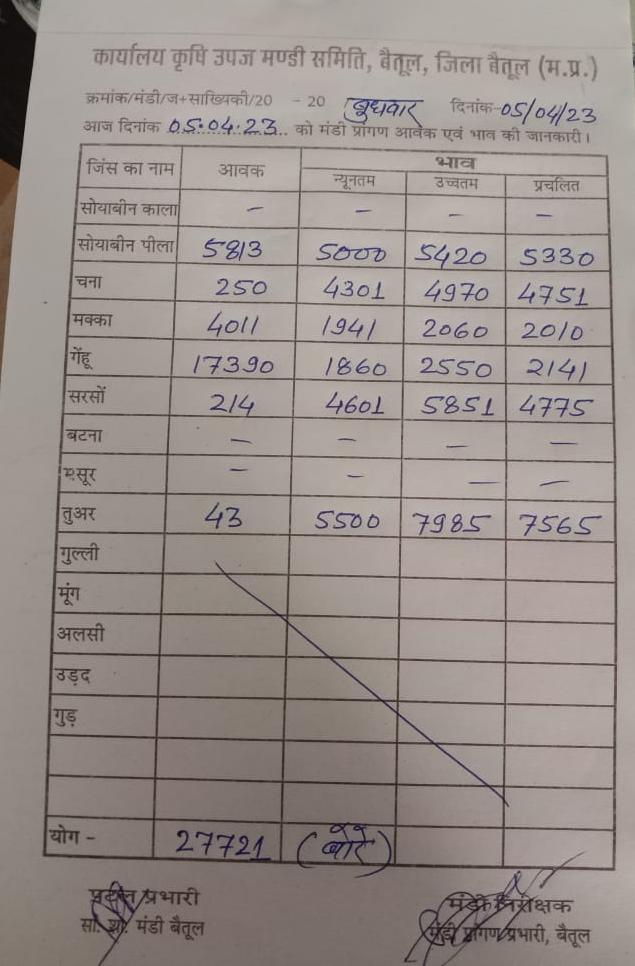 कार्यालय कृषि उपज मण्डी समिति, बैतूल, जिला बैतूल (म.प्र.)
क्रमांक/मंडी/ज+साख्यिकी/20 - 20 बुधवार दिनांक-05/04/23
आज दिनांक 05.04.23 को मंडी प्रांगण आवक एवं भाव की जानकारी।
जिंस का नाम आवक भाव
न्यूनतम उच्चतम प्रचलित
सोयाबीन काला — — — —
सोयाबीन पीला 5813 5000 5420 5330
चना 250 4301 4970 4751
मक्का 4011 1941 2060 2010
गेंहू 17390 1860 2550 2141
सरसों 214 4601 5851 4775
बटना — — — —
मसूर — — — —
तुअर 43 5500 7985 7565
गुल्ली
मूंग
अलसी
उड़द
गुड़
योग - 27721 (बोरे)
प्रभारी मंडी निरीक्षक
मंडी बैतूल मंडी प्रांगण प्रभारी, बैतूल